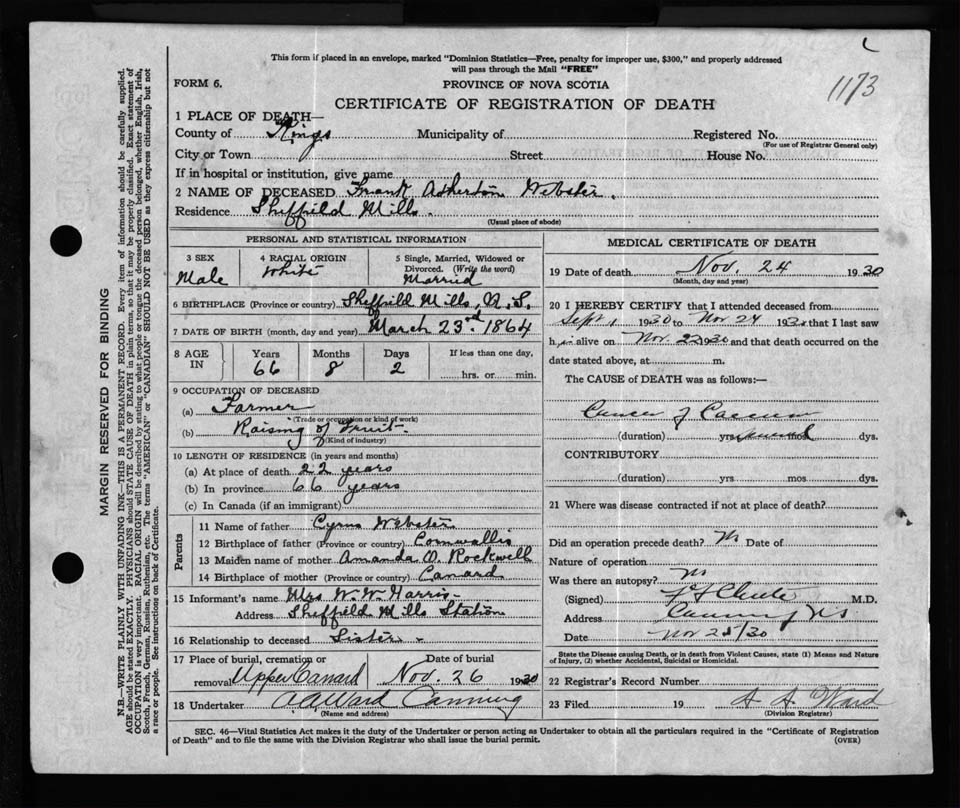 This form if placed in an envelope, marked "Dominion Statistics—Free, penalty for improper use, $300," and properly addressed
will pass through the Mail "FREE"
1173
FORM 6.
PROVINCE OF NOVA SCOTIA
CERTIFICATE OF REGISTRATION OF DEATH
1 PLACE OF DEATH—
County of Kings Municipality of Registered No.
(For use of Registrar General only)
City or Town Street House No.
If in hospital or institution, give name
2 NAME OF DECEASED Frank Atherton Webster.
Residence Sheffield Mills.
(Usual place of abode)
PERSONAL AND STATISTICAL INFORMATION
3 SEX
Male
4 RACIAL ORIGIN
White
5 Single, Married, Widowed or
Divorced. (Write the word)
Married
6 BIRTHPLACE (Province or country) Sheffield Mills, N.S.
7 DATE OF BIRTH (month, day and year) March 23rd. 1864
8 AGE IN
Years Months Days If less than one day,
66 8 2 hrs. or min.
9 OCCUPATION OF DECEASED
(a) Farmer
(Trade or occupation or kind of work)
(b) Raising of Fruit.
(Kind of industry)
10 LENGTH OF RESIDENCE (in years and months)
(a) At place of death 22 years
(b) In province 66 years
(c) In Canada (if an immigrant)
Parents
11 Name of father Cyrus Webster
12 Birthplace of father (Province or country) Cornwallis
13 Maiden name of mother Amanda O. Rockwell
14 Birthplace of mother (Province or country) Canard
15 Informant's name Mrs W. W. Harris
Address Sheffield Mills Station
16 Relationship to deceased Sister
17 Place of burial, cremation or Date of burial
removal Upper Canard Nov. 26 1930
18 Undertaker A A Ward Canning
(Name and address)
MEDICAL CERTIFICATE OF DEATH
19 Date of death Nov. 24 1930
(Month, day and year)
20 I HEREBY CERTIFY that I attended deceased from
Sept 1 1930 to Nov 24 1930 that I last saw
him alive on Nov. 1930 and that death occurred on the
date stated above, at m.
The CAUSE of DEATH was as follows:—
Cancer of Caecum
(duration) yrs. mos. dys.
CONTRIBUTORY
(duration) yrs mos. dys.
21 Where was disease contracted if not at place of death?
Did an operation precede death? No Date of
Nature of operation
Was there an autopsy? No
(Signed) M.D.
Address Canning NS
Date Nov 25/30
State the Disease causing Death, or in death from Violent Causes, state (1) Means and Nature
of Injury, (2) whether Accidental, Suicidal or Homicidal.
22 Registrar's Record Number
23 Filed 19 A A Ward
(Division Registrar)
SEC. 46—Vital Statistics Act makes it the duty of the Undertaker or person acting as Undertaker to obtain all the particulars required in the "Certificate of Registration
of Death" and to file the same with the Division Registrar who shall issue the burial permit.
(OVER)
MARGIN RESERVED FOR BINDING
N.B.—WRITE PLAINLY WITH UNFADING INK—THIS IS A PERMANENT RECORD. Every item of information should be carefully supplied.
AGE should be stated EXACTLY. PHYSICIANS should STATE CAUSE OF DEATH in plain terms, so that it may be properly classified. Exact statement of
OCCUPATION is very important. RACIAL ORIGIN will be described by stating to what people or tongue the deceased person belonged, whether English, Irish,
Scotch, French, German, Russian, Ruthenian, etc. The terms "AMERICAN" or "CANADIAN" SHOULD NOT BE USED as they express citizenship but not
a race or people. See instructions on back of Certificate.